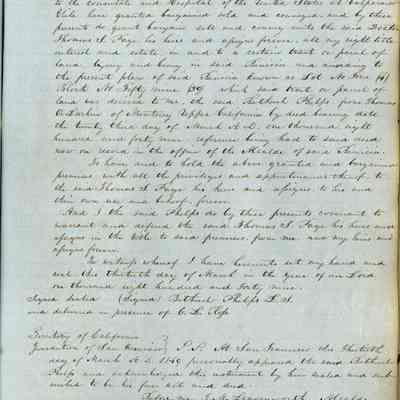 to the consulate and Hospital of the United States at Valparaiso
Chile have granted bargained sold and conveyed and by these
presents do grant bargain sell and convey unto the said Doctor
Thomas S. Page his heirs and assigns forever all my right title
interest and estate in and to a certain tract or parcel of
land lying and being in said Benicia and according to
the present plan of said Benicia known as Lot No. One (1)
Block No. Fifty nine (59) which said tract or parcel of
land was deeded to me, the said Bethuel Phelps, from Thomas
O Larkin of Monterey Upper California by deed bearing date
the twenty third day of March A.D. one thousand eight
hundred and forty nine reference being had to said deed
now on record in the office of the Alcalde of said Benicia.
To have and to hold the above granted and bargained
premises with all the privileges and appurtenances thereof to
the said Thomas S. Page his heirs and assigns to his and
their own use and behoof forever.
And I the said Phelps do by these presents covenant to
warrant and defend the said Thomas S. Page his heirs and
assigns in the title to said premises from me and my heirs and
assigns forever.
In witness whereof I have hereunto set my hand and
seal this thirtieth day of March in the year of our Lord
one thousand eight hundred and forty nine.
Signed Sealed (Signed) Bethuel Phelps L.S.
and delivered in presence of C. L. Ross
Territory of California
Jurisdiction of San Francisco S.S. At San Francisco this Thirtieth
day of March A.D. 1849 personally appeared the said Bethuel
Phelps and acknowledged this instrument by him sealed and sub
scribed to be his free act and deed.
Before me T. M. Leavenworth Alcalde